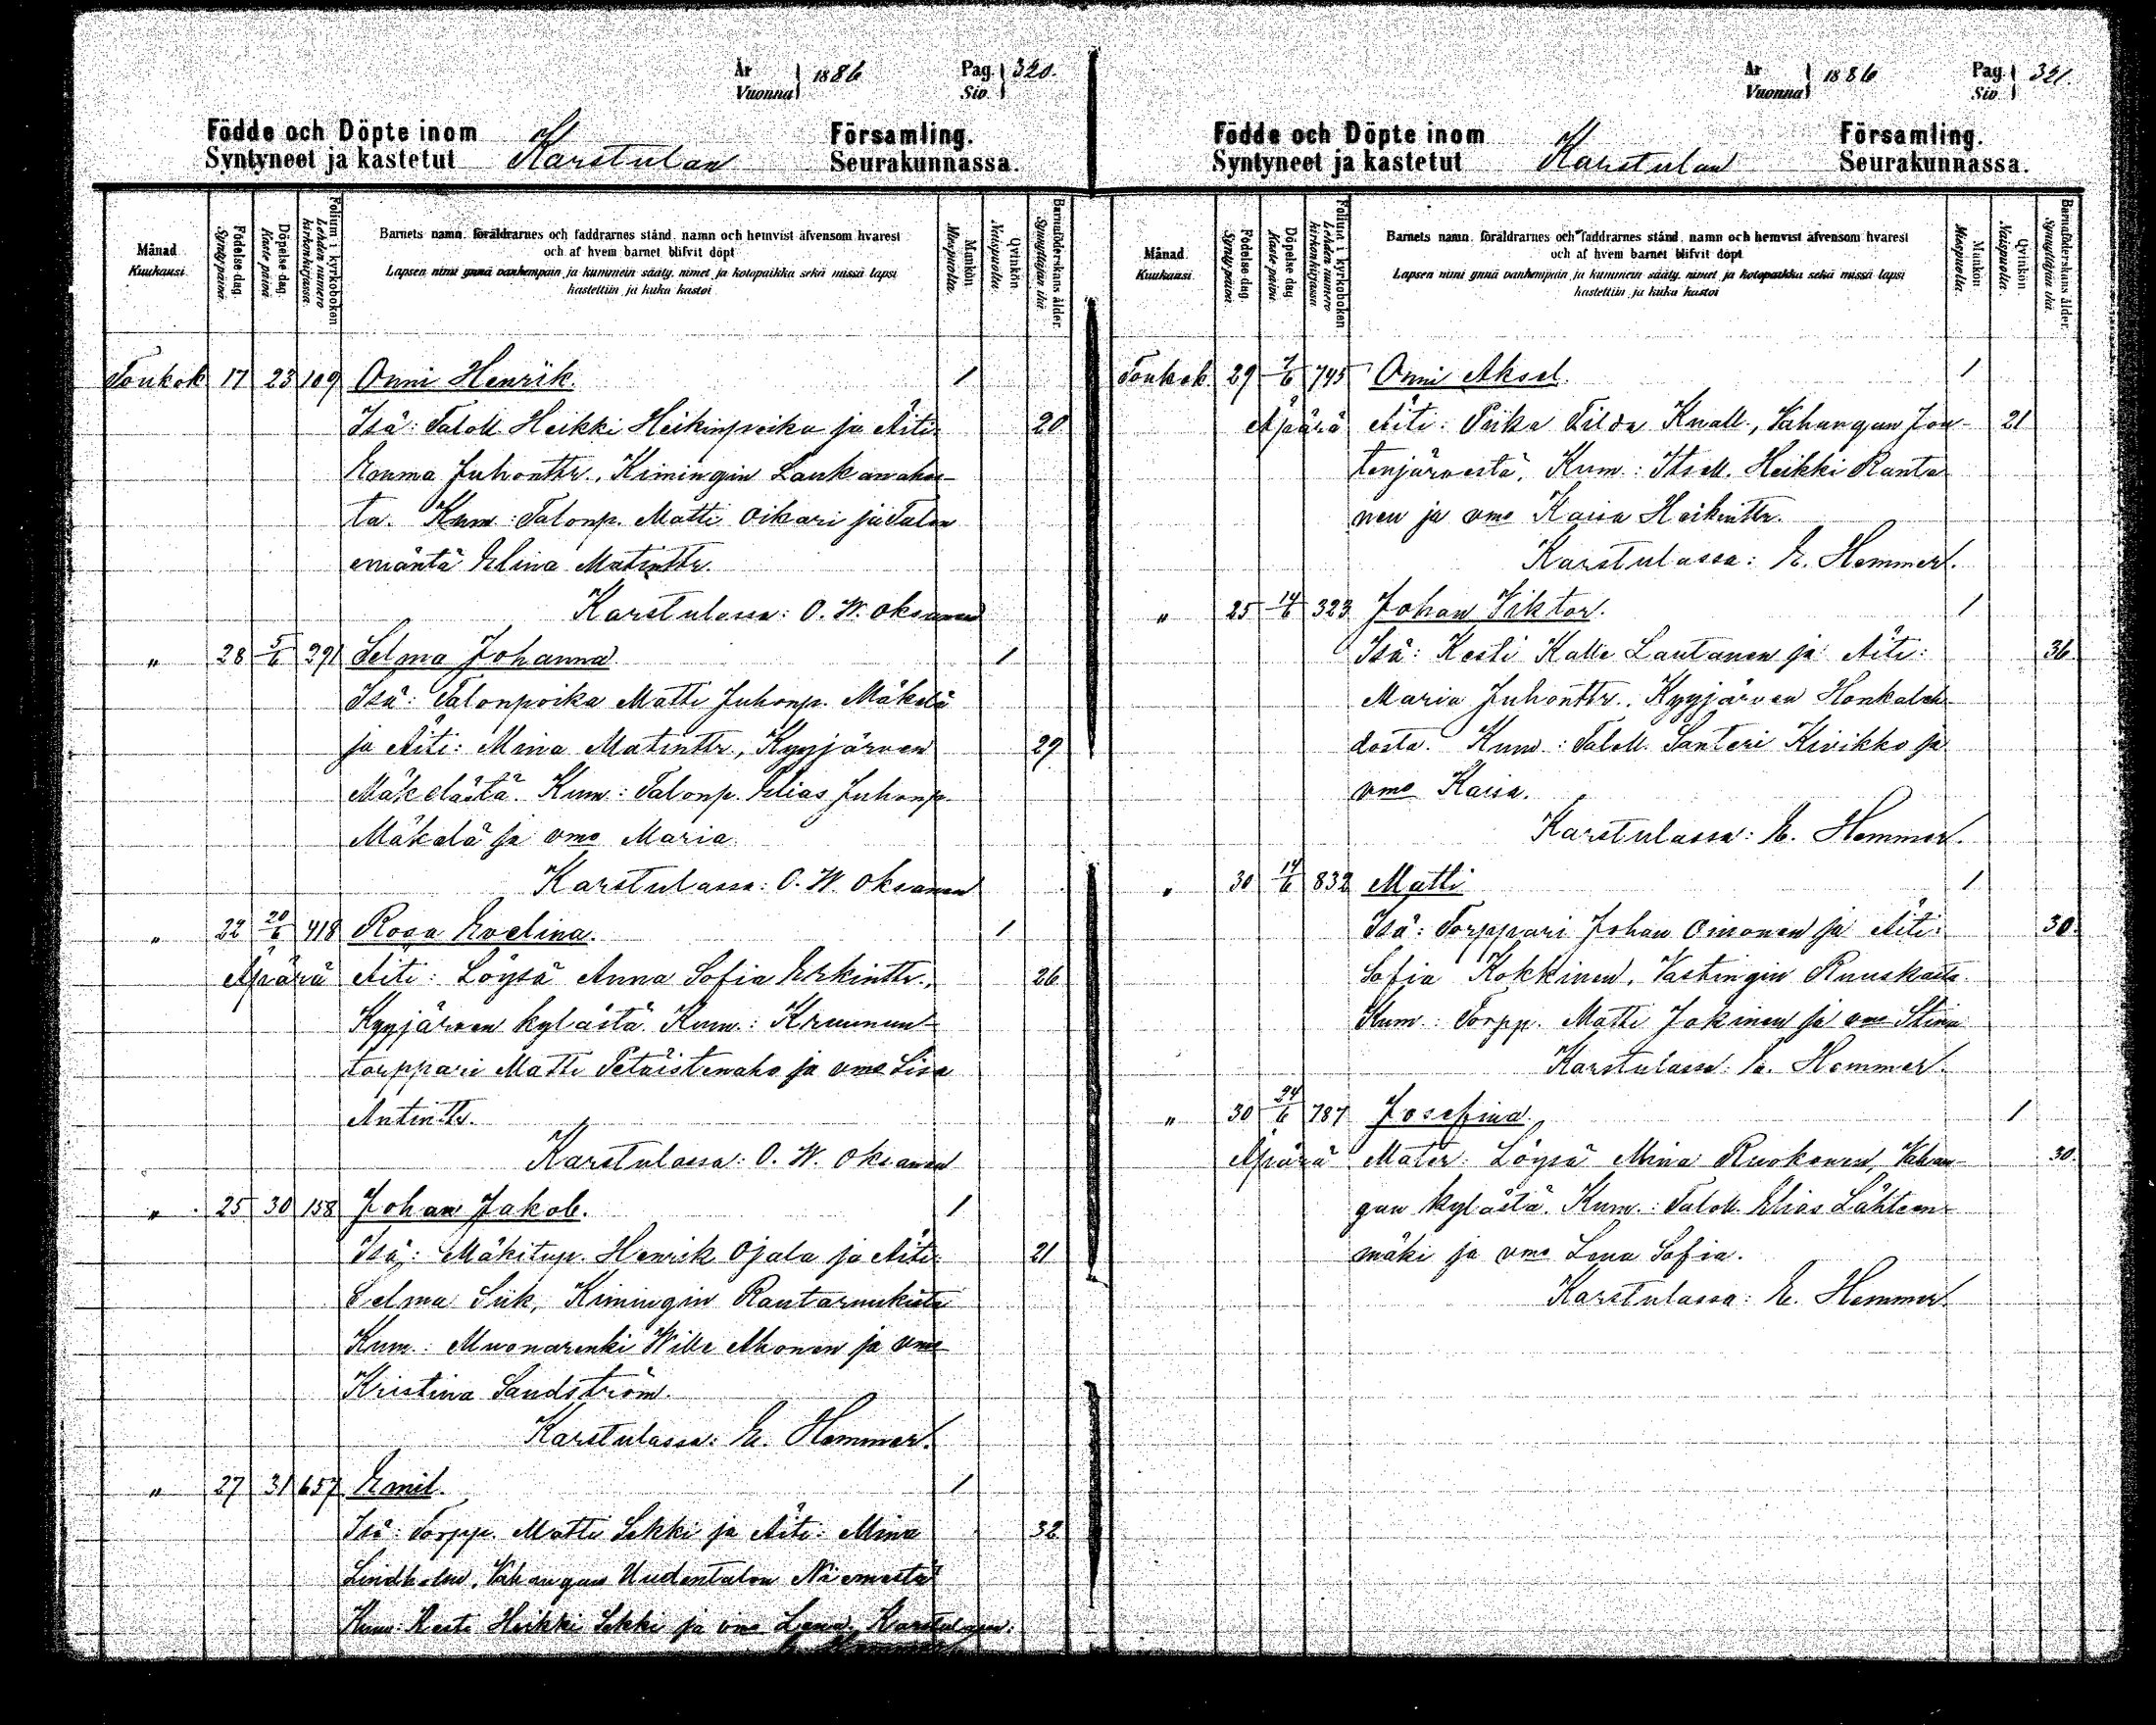 År Vuonna 1886 Pag. Siv. 320.
Födde och Döpte inom Församling.
Syntyneet ja kastetut Karstulan Seurakunnassa.
Månad Kuukausi
Födelse-dag. Syntypäivä.
Döpelse-dag. Kaste päivä
Folium i kyrkoboken Lehden numero kirkonkirjassa
Barnets namn, föräldrarnes och faddrarnes stånd, namn och hemvist äfvensom hvarest
och af hvem barnet blifvit döpt
Lapsen nimi ynnä vanhempain ja kummein sääty, nimet ja kotopaikka sekä missä lapsi
kastettiin ja kuka kastoi
Mankön. Miespuolta.
Qvinkön Naispuolta.
Barnaföderskans ålder. Synnyttäjän ikä.
Toukok 17 23 109 Onni Henrik. 1
Isä: Taloll. Heikki Heikinpoika ja Äiti: 20
Emma Juhonttr., Kimingin Laukanahos-
ta. Kum: Talonp. Matti Oikari ja Talon
emäntä Elina Matinttr.
Karstulassa: O. W. Oksanen
" 28 5/6 291 Selma Johanna. 1
Isä: Talonpoika Matti Juhonp. Mäkelä
ja Äiti: Mina Matinttr., Kyyjärven 29
Mäkelästä. Kum: Talonp. Elias Juhonp.
Mäkelä ja vmo Maria
Karstulassa: O. W. Oksanen
" 22 20/6 418 Rosa Evelina. 1
Äpärä Äiti: Löysä Anna Sofia Erkinttr., 26
Kyyjärven kylästä. Kum.: Kruunun-
torppari Matti Petäistenaho ja vmo Lisa
Antinttr.
Karstulassa: O. W. Oksanen
" 25 30 158 Johan Jakob. 1
Isä: Mäkitup. Henrik Ojala ja Äiti: 21
Selma Siik, Kimingin
Kum: Muonarenki Wille Ahonen ja vmo
Kristina Sandström.
Karstulassa: E. Hemmer.
" 27 31 657 Emil. 1
Isä: Torpp. Matti Sekki ja Äiti: Mina 32
Lindholm, Vahangan Uudentalon Niemestä
Kum: Kesti Heikki Sekki ja vmo Lena. Karstulassa:
E. Hemmer
År Vuonna 1886 Pag. Siv. 321.
Födde och Döpte inom Församling.
Syntyneet ja kastetut Karstulan Seurakunnassa.
Månad Kuukausi
Födelse-dag. Syntypäivä.
Döpelse-dag Kaste päivä
Folium i kyrkoboken Lehden numero kirkonkirjassa
Barnets namn, föräldrarnes och faddrarnes stånd, namn och hemvist äfvensom hvarest
och af hvem barnet blifvit döpt
Lapsen nimi ynnä vanhempain ja kummein sääty, nimet ja kotopaikka sekä missä lapsi
kastettiin ja kuka kastoi
Mankön Miespuolta.
Qvinkön Naispuolta.
Barnaföderskans ålder. Synnyttäjän ikä.
Toukok 29 /6 745 Onni Aksel. 1
Äpärä Äiti: Piika Tilda Knall., Vahangan Jou- 21
tenjärvestä. Kum: Itsell. Heikki Ranta
nen ja vmo Kaisa Heikinttr.
Karstulassa: E. Hemmer.
" 25 14/6 323 Johan Viktor. 1
Isä: Kesti Kalle Lautanen ja Äiti: 36
Maria Juhonttr. Kyyjärven Honkaleh-
dosta. Kum: Taloll. Santeri Kivikko ja
vmo Kaisa.
Karstulassa: E. Hemmer.
" 30 14/6 832 Matti 1
Isä: Torppari Johan Oinonen ja Äiti: 30.
Sofia Kokkinen, Vastingin Ruuskasta.
Kum: Torpp. Matti Jokinen ja vmo Stina
Karstulassa: E. Hemmer.
" 30 24/6 787 Josefina. 1
Äpärä Mater: Löysä Mina Ruokonen, Vahan- 30.
gan kylästä. Kum.: Taloll. Elias Lähteen-
mäki ja vmo Lena Sofia.
Karstulassa: E. Hemmer.